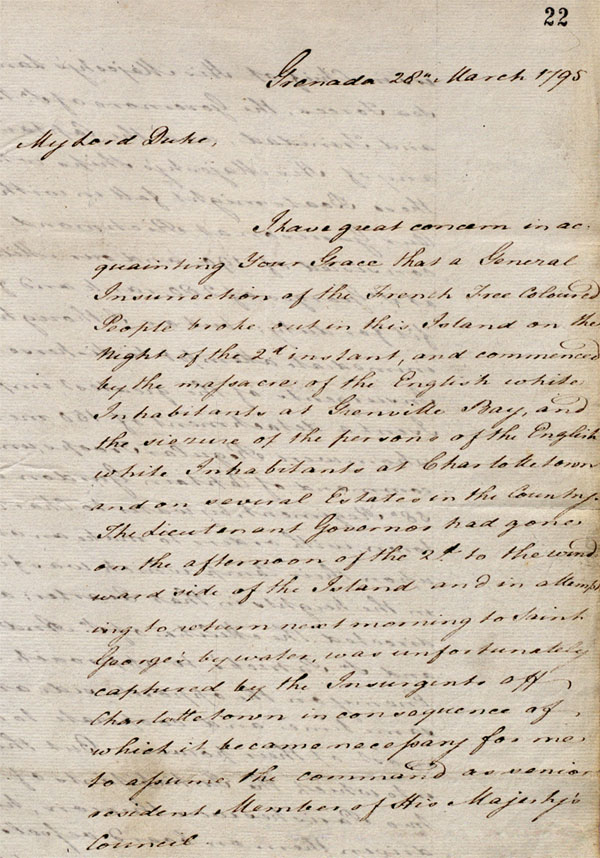 22
Grenada 28th March 1795
My Lord Duke,
I have great concern in ac-
quainting Your Grace that a General
Insurrection of the French Free Coloured
People broke out in this Island on the
Night of the 2d instant, and commenced
by the massacre of the English white
Inhabitants at Grenville Bay, and
the siezure of the persons of the English
white Inhabitants at Charlottetown
and on several Estates in the Country.
The Lieutenant Governor had gone
on the afternoon of the 2d to the wind
ward side of the Island and in attempt
ing to return next morning to Saint
George's by water, was unfortunately
captured by the Insurgents off
Charlottetown in consequence of
which it became necessary for me
to assume the command as senior
resident Member of His Majesty's
Council.